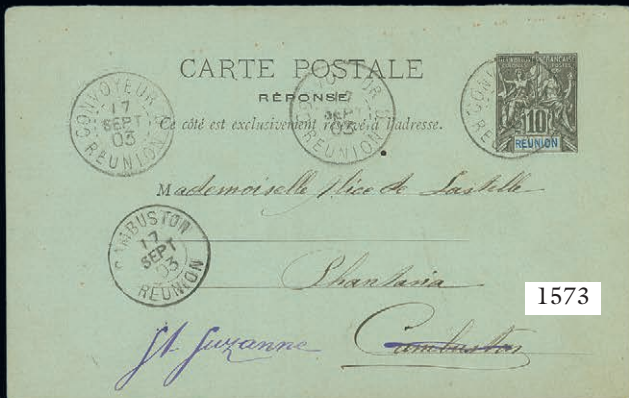 CARTE POSTALE
RÉPONSE
Ce côté est exclusivement réservé à l'adresse.
CONVOYEUR
17
SEPT
03
REUNION
17
SEPT
03
REUNION
10
REUNION
Mademoiselle Alice de Lastelle
CAMBUSTON
17
SEPT
03
REUNION
Phantasia
1573
St Suzanne
Cambuston